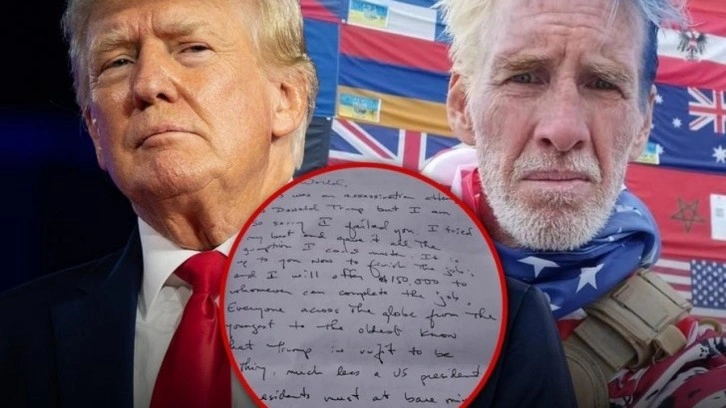 World,
was an assassination atte
Donald Trump but I am
so sorry I failed you. I tried
my best and gave it all the
gumption I could muster. It is
up to you now to finish the job;
and I will offer $150,000 to
whomever can complete the job.
Everyone across the globe from the
youngest to the oldest know
that Trump is unfit to be
thing, much less a US president
esidents must at bare min